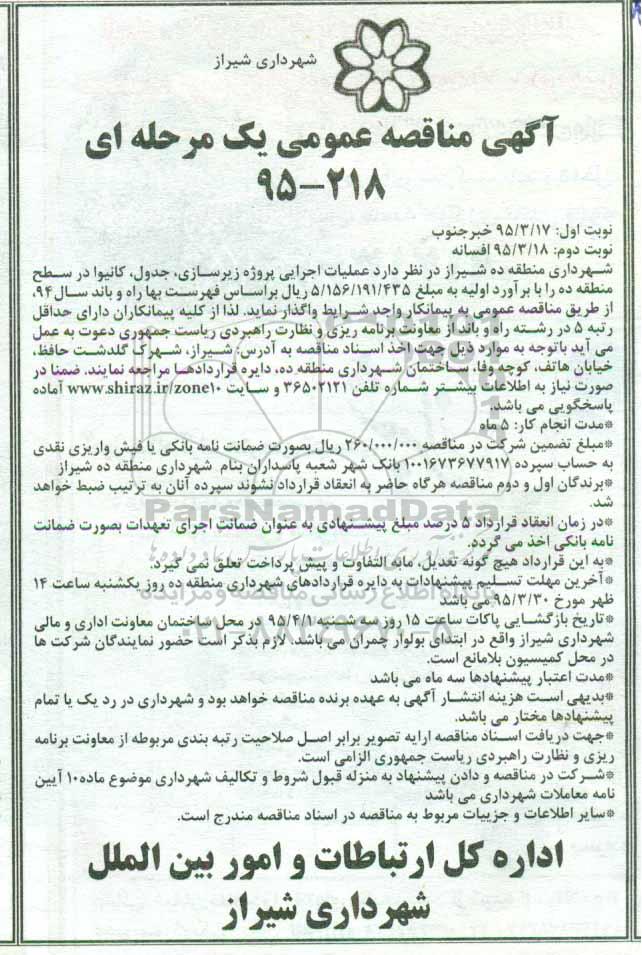 شهرداری شیراز
آگهی مناقصه عمومی یک مرحله ای
۹۵-۲۱۸
نوبت اول: ۹۵/۳/۱۷ خبرجنوب
نوبت دوم: ۹۵/۳/۱۸ افسانه
شهرداری منطقه ده شیراز در نظر دارد عملیات اجرایی پروژه زیرسازی، جدول، کانیوا در سطح
منطقه ده را با برآورد اولیه به مبلغ ۵/۱۵۶/۱۹۱/۴۳۵ ریال براساس فهرست بها راه و باند سال ۹۴،
از طریق مناقصه عمومی به پیمانکار واجد شرایط واگذار نماید. لذا از کلیه پیمانکاران دارای حداقل
رتبه ۵ در رشته راه و باند از معاونت برنامه ریزی و نظارت راهبردی ریاست جمهوری دعوت به عمل
می آید باتوجه به موارد ذیل جهت اخذ اسناد مناقصه به آدرس: شیراز، شهرک گلدشت حافظ،
خیابان هاتف، کوچه وفا، ساختمان شهرداری منطقه ده، دایره قراردادها مراجعه نمایند. ضمنا در
صورت نیاز به اطلاعات بیشتر شماره تلفن ۳۶۵۰۲۱۲۱ و سایت www.shiraz.ir/zone۱۰ آماده
پاسخگویی می باشد.
*مدت انجام کار: ۵ ماه
*مبلغ تضمین شرکت در مناقصه ۲۶۰/۰۰۰/۰۰۰ ریال بصورت ضمانت نامه بانکی یا فیش واریزی نقدی
به حساب سپرده ۱۰۰۱۶۷۳۶۷۷۹۱۷ بانک شهر شعبه پاسداران بنام شهرداری منطقه ده شیراز
*برندگان اول و دوم مناقصه هرگاه حاضر به انعقاد قرارداد نشوند سپرده آنان به ترتیب ضبط خواهد
شد.
*در زمان انعقاد قرارداد ۵ درصد مبلغ پیشنهادی به عنوان ضمانت اجرای تعهدات بصورت ضمانت
نامه بانکی اخذ می گردد.
*به این قرارداد هیچ گونه تعدیل، مابه التفاوت و پیش پرداخت تعلق نمی گیرد.
*آخرین مهلت تسلیم پیشنهادات به دایره قراردادهای شهرداری منطقه ده روز یکشنبه ساعت ۱۴
ظهر مورخ ۹۵/۳/۳۰ می باشد
*تاریخ بازگشایی پاکات ساعت ۱۵ روز سه شنبه ۹۵/۴/۱ در محل ساختمان معاونت اداری و مالی
شهرداری شیراز واقع در ابتدای بولوار چمران می باشد. لازم بذکر است حضور نمایندگان شرکت ها
در محل کمیسیون بلامانع است.
*مدت اعتبار پیشنهادها سه ماه می باشد
*بدیهی است هزینه انتشار آگهی به عهده برنده مناقصه خواهد بود و شهرداری در رد یک یا تمام
پیشنهادها مختار می باشد.
*جهت دریافت اسناد مناقصه ارایه تصویر برابر اصل صلاحیت رتبه بندی مربوطه از معاونت برنامه
ریزی و نظارت راهبردی ریاست جمهوری الزامی است.
*شرکت در مناقصه و دادن پیشنهاد به منزله قبول شروط و تکالیف شهرداری موضوع ماده۱۰ آیین
نامه معاملات شهرداری می باشد
*سایر اطلاعات و جزییات مربوط به مناقصه در اسناد مناقصه مندرج است.
اداره کل ارتباطات و امور بین الملل
شهرداری شیراز
ParsNamadData
پایگاه اطلاع رسانی مناقصه و مزایده